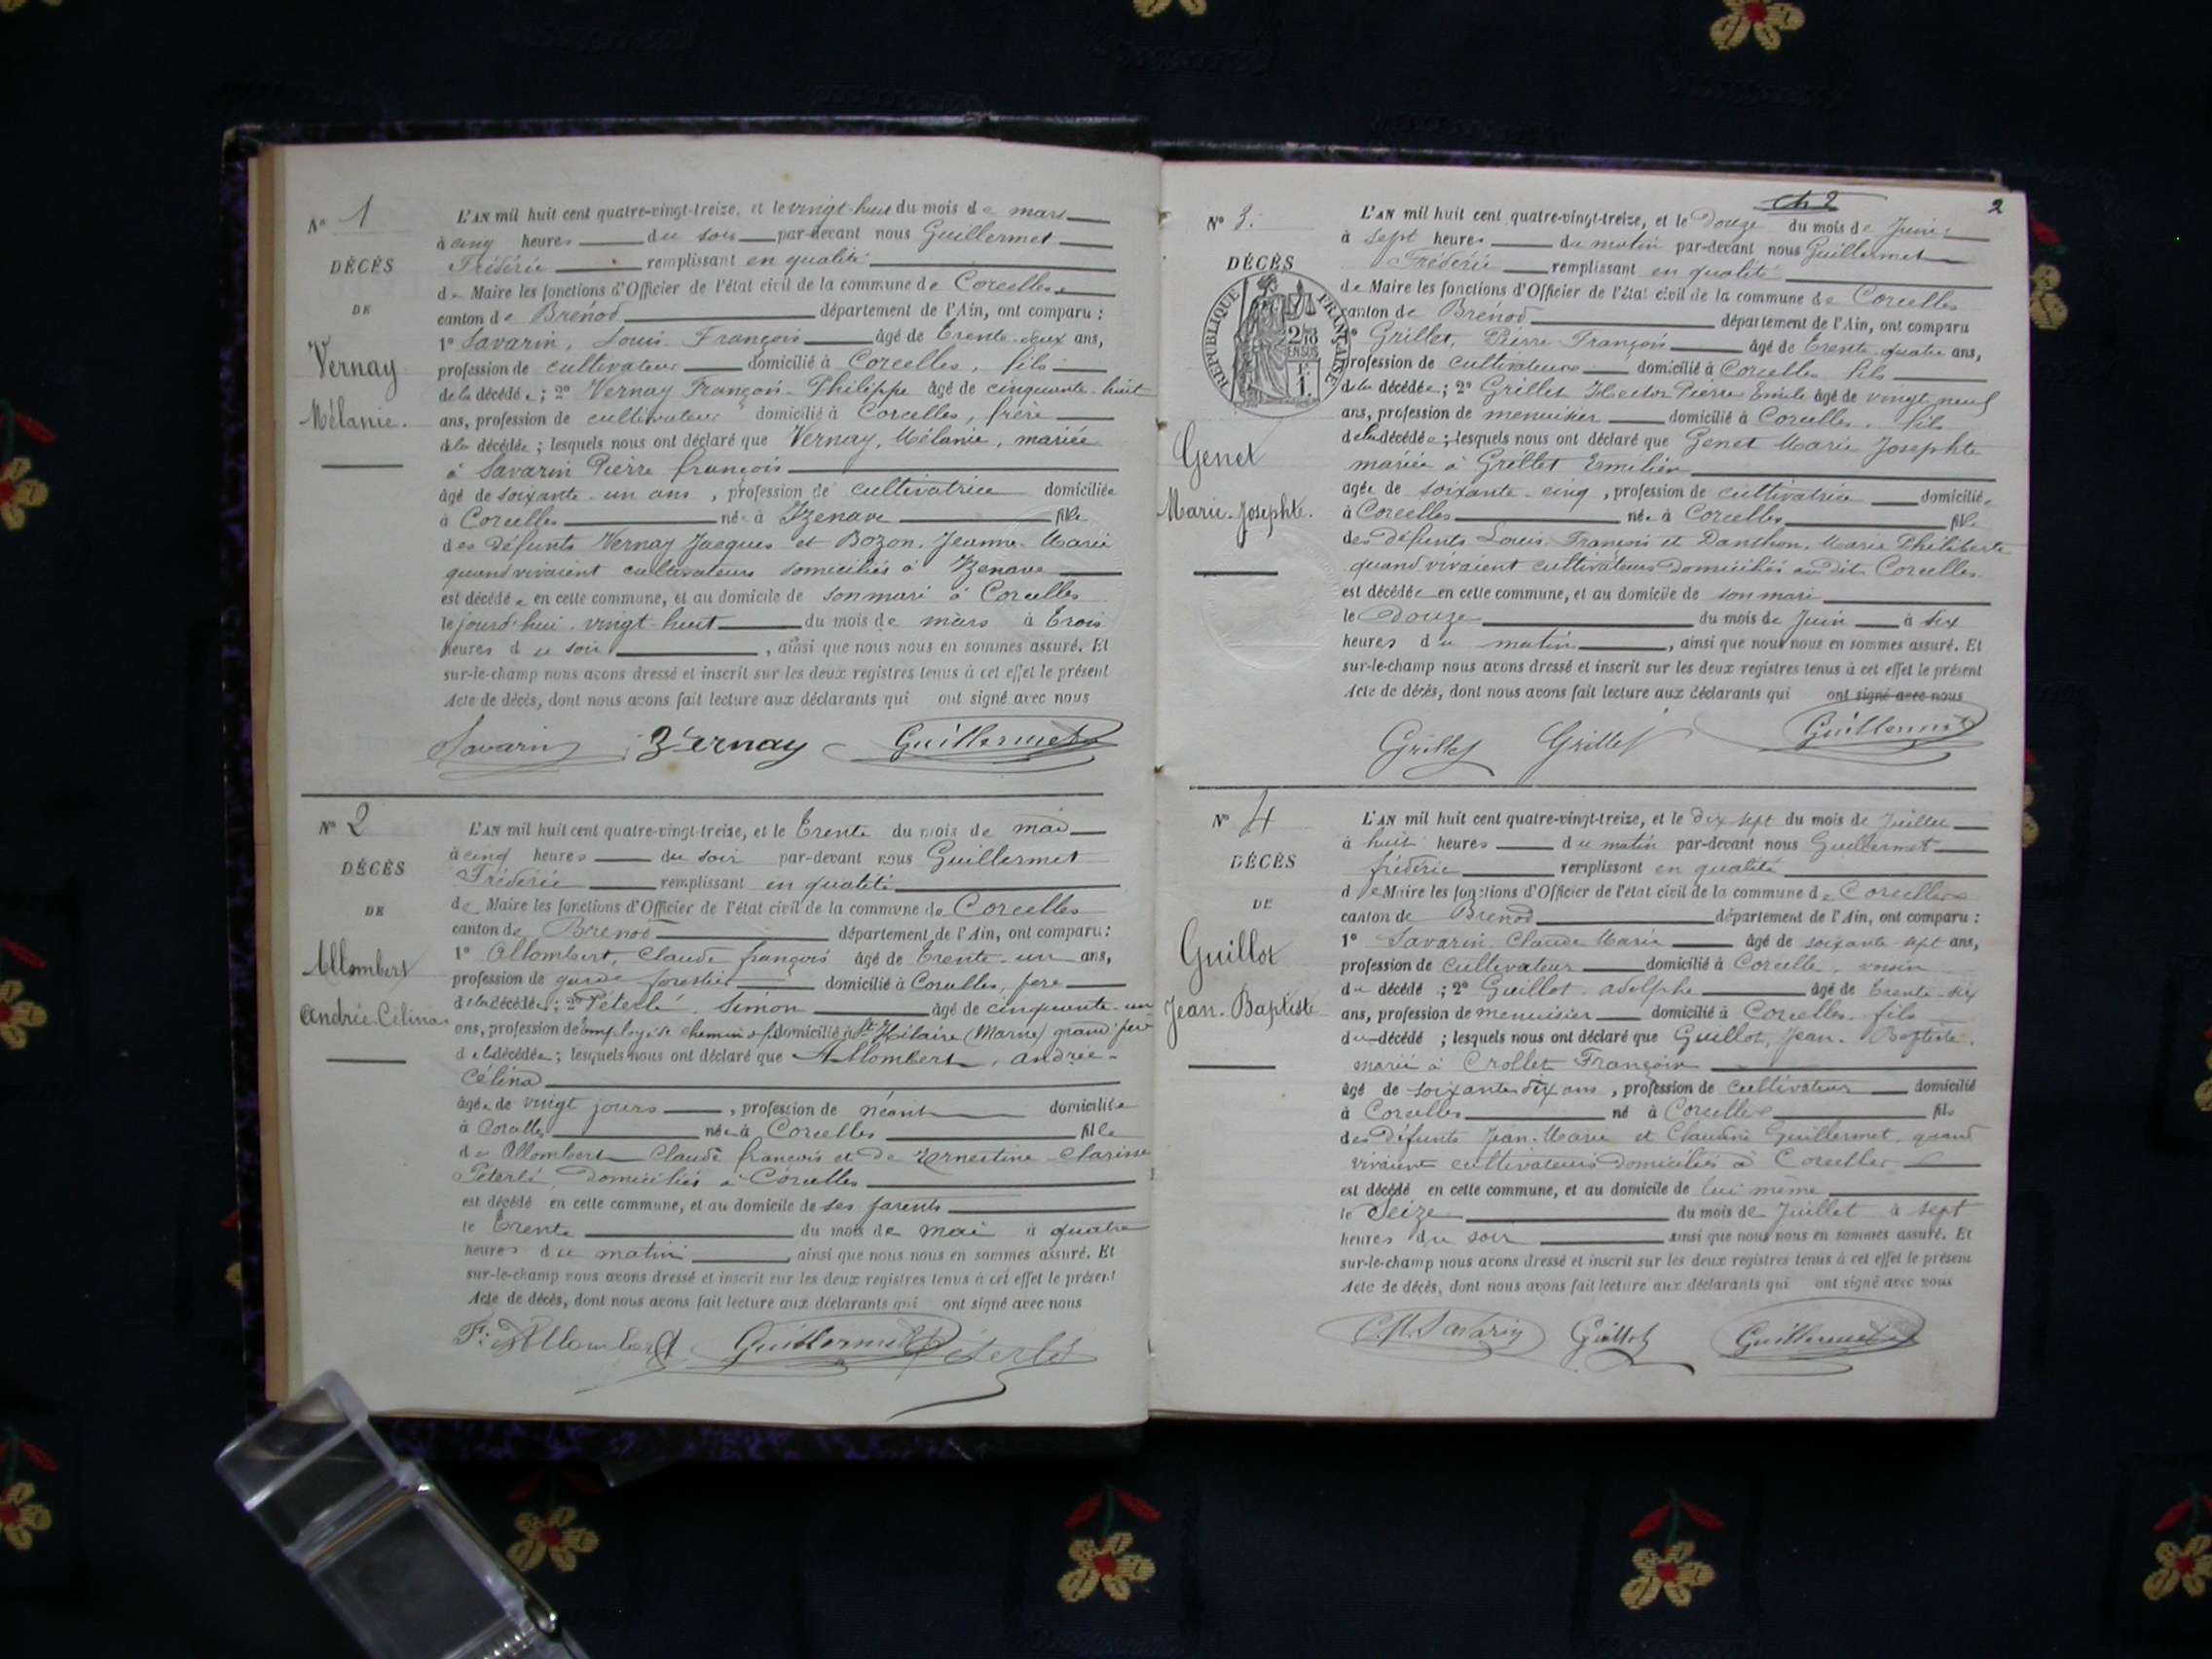 N° 1
DÉCÈS
DE
Vernay
Mélanie.
L'AN mil huit cent quatre-vingt-treize, et le vingt-huit du mois de mars
à cinq heures du soir par-devant nous Guillermet
Frédéric remplissant en qualité
de Maire les fonctions d'Officier de l'état civil de la commune de Corcelles
canton de Brénod département de l'Ain, ont comparu :
1° Savarin, Louis François âgé de trente-deux ans,
profession de cultivateur domicilié à Corcelles, fils
de la décédée ; 2° Vernay François-Philippe âgé de cinquante-huit
ans, profession de cultivateur domicilié à Corcelles, frère
de la décédée ; lesquels nous ont déclaré que Vernay, Mélanie, mariée
à Savarin Pierre françois
âgé de soixante-un ans, profession de cultivatrice domiciliée
à Corcelles née à Izenave fille
des défunts Vernay Jacques et Bozon, Jeanne-Marie
quand vivaient cultivateurs domiciliés à Izenave
est décédée en cette commune, et au domicile de son mari à Corcelles
le jourd'hui vingt-huit du mois de mars à trois
heures du soir, ainsi que nous nous en sommes assuré. Et
sur-le-champ nous avons dressé et inscrit sur les deux registres tenus à cet effet le présent
Acte de décès, dont nous avons fait lecture aux déclarants qui ont signé avec nous
Savarin Vernay Guillermet
N° 2
DÉCÈS
DE
Allombert
Andrée-Célina.
L'AN mil huit cent quatre-vingt-treize, et le trente du mois de mai
à cinq heures du soir par-devant nous Guillermet
Frédéric remplissant en qualité
de Maire les fonctions d'Officier de l'état civil de la commune de Corcelles
canton de Brénod département de l'Ain, ont comparu :
1° Allombert, Claude françois âgé de trente-un ans,
profession de garde forestier domicilié à Corcelles, père
de la décédée ; 2° Péterlé Simon âgé de cinquante-un
ans, profession de employé de chemin d f domicilié à St Hilaire (Marne) grand père
de la décédée ; lesquels nous ont déclaré que Allombert, andrée-
Célina
âgée de vingt jours, profession de néant domiciliée
à Corcelles née à Corcelles fille
de Allombert Claude françois et de Ernestine Clarisse
Péterlé, domiciliés à Corcelles
est décédé en cette commune, et au domicile de ses parents
le trente du mois de mai à quatre
heures du matin, ainsi que nous nous en sommes assuré. Et
sur-le-champ nous avons dressé et inscrit sur les deux registres tenus à cet effet le présent
Acte de décès, dont nous avons fait lecture aux déclarants qui ont signé avec nous
F: Allombert Guillermet Péterlé
2
N° 3.
DÉCÈS
RÉPUBLIQUE FRANÇAISE
2/10 EN SUS
Genet
Marie-Josephte.
L'AN mil huit cent quatre-vingt-treize, et le Douze du mois de Juin
à sept heures du matin par-devant nous Guillermet
Frédéric remplissant en qualité
de Maire les fonctions d'Officier de l'état civil de la commune de Corcelles
canton de Brénod département de l'Ain, ont comparu
1° Grillet, Pierre François âgé de trente-quatre ans,
profession de cultivateur domicilié à Corcelles fils
de la décédée ; 2° Grillet Hector Pierre Emile âgé de vingt neuf
ans, profession de menuisier domicilié à Corcelles, fils
de la décédée ; lesquels nous ont déclaré que Genet Marie Josephte
mariée à Grillet Emilien
âgée de soixante-cinq, profession de cultivatrice domiciliée
à Corcelles née à Corcelles fille
des défunts Louis-François et Danthon, Marie Philiberte
quand vivaient cultivateurs domiciliés au dit Corcelles
est décédée en cette commune, et au domicile de son mari
le Douze du mois de Juin à six
heures du matin, ainsi que nous nous en sommes assuré. Et
sur-le-champ nous avons dressé et inscrit sur les deux registres tenus à cet effet le présent
Acte de décès, dont nous avons fait lecture aux déclarants qui ont signé avec nous
Grillet Grillet Guillermet
N° 4
DÉCÈS
DE
Guillot
Jean-Baptiste
L'AN mil huit cent quatre-vingt-treize, et le dix-sept du mois de Juillet
à huit heures du matin par-devant nous Guillermet
frédéric remplissant en qualité
de Maire les fonctions d'Officier de l'état civil de la commune de Corcelles
canton de Brénod département de l'Ain, ont comparu :
1° Savarin Claude Marie âgé de soixante-sept ans,
profession de Cultivateur domicilié à Corcelle, voisin
du décédé ; 2° Guillot adolphe âgé de trente-six
ans, profession de menuisier domicilié à Corcelles, fils
du décédé ; lesquels nous ont déclaré que Guillot, Jean-Baptiste,
marié à Crollet Françoise
âgé de soixante dix ans, profession de Cultivateur domicilié
à Corcelles né à Corcelles fils
des défunts Jean-Marie et Claudine Guillermet, quand
vivaient cultivateurs domiciliés à Corcelles
est décédé en cette commune, et au domicile de lui même
le Seize du mois de Juillet à sept
heures du soir ainsi que nous nous en sommes assuré. Et
sur-le-champ nous avons dressé et inscrit sur les deux registres tenus à cet effet le présent
Acte de décès, dont nous avons fait lecture aux déclarants qui ont signé avec nous
C.M. Savarin Guillot Guillermet